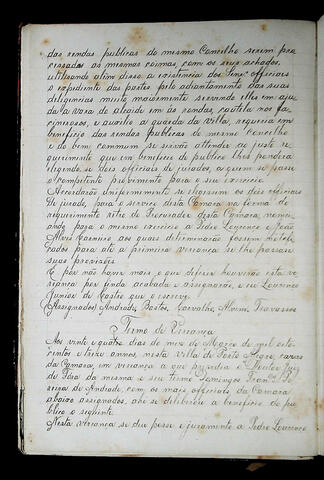 das rendas publicas do mesmo Concelho serem pro
cessadas as mesmas coimas, com os seus achados,
utilisando alem disso a existencia dos Senrs officiaes
o expediente das partes pelo adiantamento das suas
deligencias muito maiormente servindo elles em aju
da a vara de alcaide em as rondas, cautela nos fa
cinorosos, e auxilio a guarda da villa, requeria em
beneficio das rendas publicas do mesmo concelho
e do bem commum se sirvão attender ao justo re
querimento que em beneficio do publico lhes pondera
elegendo-se dois officiaes de jurados, a quem se passe
o competente provimento para o seu exercicio
Accordarão uniformemente se elegessem os dois officiaes
de jurado, para o servico desta Camara na forma do
requerimento retro do Procurador desta Camara, nome
ando para o mesmo exercicio a Pedro Lourenço e João
Alves Carneiro, aos quaes determinarão fossem notefi
cados para ate a primeira vereança se lhe passar
suas provisões
E por não haver mais o que deferir houverão esta ve
reança por finda acabada e assignarão, e eu Lourenço
Junior de Castro que o escrevi
(Assignados) Andrade, Bastos, Carvalho, Alvim, Travassos
Termo de Vereança
Aos vinte e quatro dias do mez de Março de mil oito
centos e treze annos, nesta Villa de Porto Alegre, cazas
da Camara, em vereança a que prezidia o Doutor Juiz
de Fora da mesma e seu termo Domingos Francco Pe
reira de Andrade, com os mais officiaes da Camara
abaixo assignados, ahi se deliberou a beneficio do pu
blico o seguinte
Nesta vereança se deu posse e juramento a Pedro Lourenço